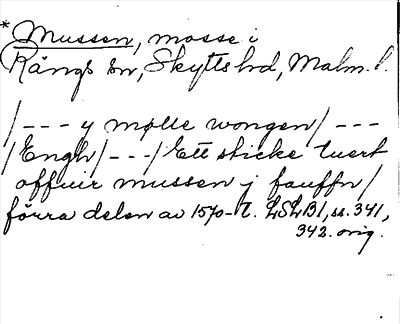 * Mussen, mosse i
Rängs sn, Skytts hd, Malm. l.
/--- y mølle wongen/ ---
/Engh/---/Ett sticke tuert
offuir mussen j fauffn/
förra delen av 1570-t. LSLB1, ss. 341,
342. orig.